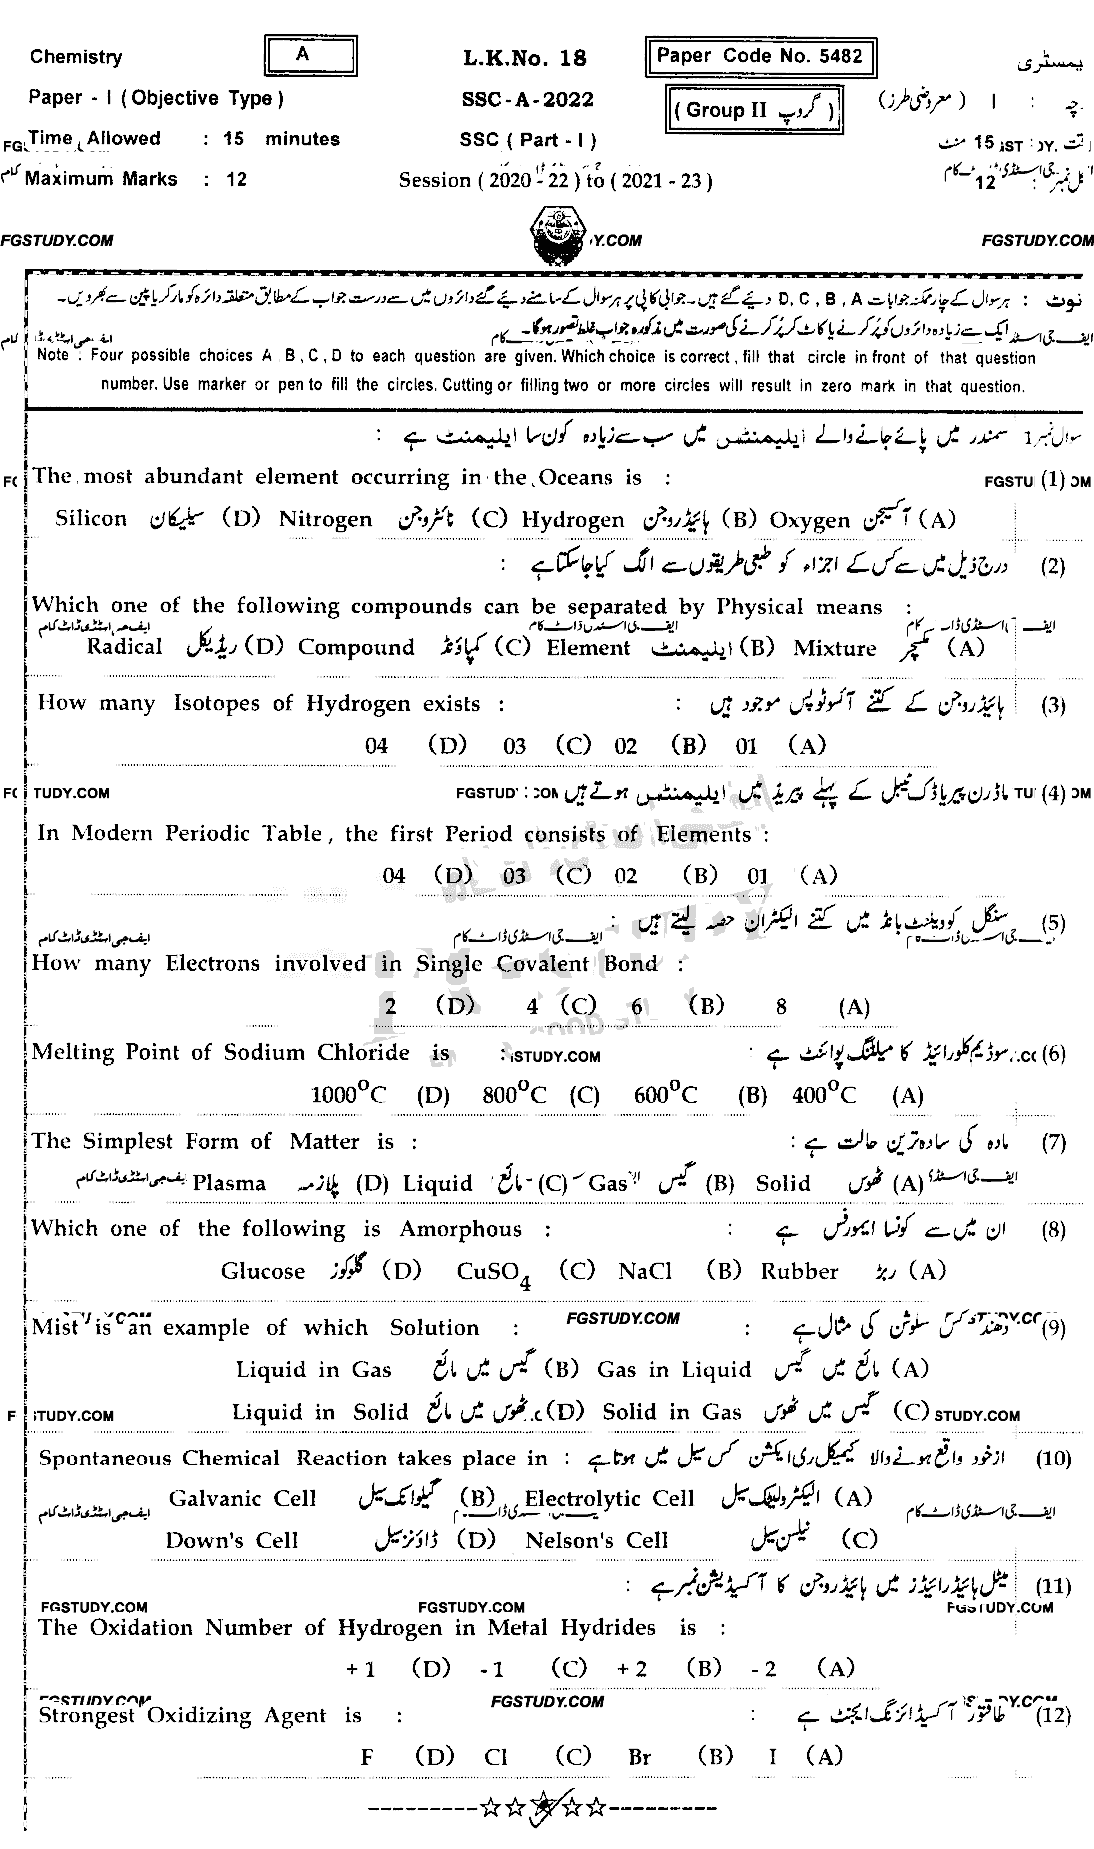 Chemistry A L.K.No. 18 Paper Code No. 5482 یمسٹری
Paper - I ( Objective Type ) SSC-A-2022 ( Group II گروپ ) ( معروضی طرز ) I : چہ
Time Allowed : 15 minutes SSC ( Part - I ) 15 منٹ
Maximum Marks : 12 Session ( 2020 - 22 ) to ( 2021 - 23 ) 12
FGSTUDY.COM Y.COM FGSTUDY.COM
نوٹ : ہر سوال کے چار ممکنہ جوابات D, C, B, A دیئے گئے ہیں۔ جوابی کاپی پر ہر سوال کے سامنے دیئے گئے دائروں میں سے درست جواب کے مطابق متعلقہ دائرہ کو مارکر یا پین سے بھر دیں۔
ایک سے زیادہ دائروں کو پُر کرنے یا کاٹ کر پُر کرنے کی صورت میں مذکورہ جواب غلط تصور ہوگا۔
Note : Four possible choices A , B , C , D to each question are given. Which choice is correct , fill that circle in front of that question
number. Use marker or pen to fill the circles. Cutting or filling two or more circles will result in zero mark in that question.
سوال نمبر 1 سمندر میں پائے جانے والے ایلیمنٹس میں سب سے زیادہ کون سا ایلیمنٹ ہے :
The most abundant element occurring in the Oceans is : FGSTU (1) OM
Silicon سلیکان (D) Nitrogen نائٹروجن (C) Hydrogen ہائیڈروجن (B) Oxygen آکسیجن (A)
(2) درج ذیل میں سے کس کے اجزاء کو طبعی طریقوں سے الگ کیا جاسکتا ہے :
Which one of the following compounds can be separated by Physical means :
ایف جی اسٹڈی ڈاٹ کام ایف جی اسٹڈی ڈاٹ کام
Radical ریڈیکل (D) Compound کمپاؤنڈ (C) Element ایلیمنٹ (B) Mixture مکسچر (A)
How many Isotopes of Hydrogen exists : ہائیڈروجن کے کتنے آئسوٹوپس موجود ہیں : (3)
04 (D) 03 (C) 02 (B) 01 (A)
TUDY.COM FGSTUD COM ماڈرن پیریاڈک ٹیبل کے پہلے پیریڈ میں ایلیمنٹس ہوتے ہیں TU (4) OM
In Modern Periodic Table , the first Period consists of Elements :
04 (D) 03 (C) 02 (B) 01 (A)
(5) سنگل کوویلنٹ بانڈ میں کتنے الیکٹران حصہ لیتے ہیں :
ایف جی اسٹڈی ڈاٹ کام ایف جی اسٹڈی ڈاٹ کام
How many Electrons involved in Single Covalent Bond :
2 (D) 4 (C) 6 (B) 8 (A)
Melting Point of Sodium Chloride is : STUDY.COM سوڈیم کلورائیڈ کا میلٹنگ پوائنٹ ہے : (6)
1000°C (D) 800°C (C) 600°C (B) 400°C (A)
The Simplest Form of Matter is : مادہ کی سادہ ترین حالت ہے : (7)
Plasma پلازمہ (D) Liquid مائع (C) Gas گیس (B) Solid ٹھوس (A)
Which one of the following is Amorphous : ان میں سے کونسا ایمورفس ہے : (8)
Glucose گلوکوز (D) CuSO4 (C) NaCl (B) Rubber ربڑ (A)
Mist is an example of which Solution : FGSTUDY.COM دھند کس سلوشن کی مثال ہے : (9)
Liquid in Gas گیس میں مائع (B) Gas in Liquid مائع میں گیس (A)
STUDY.COM Liquid in Solid ٹھوس میں مائع (D) Solid in Gas گیس میں ٹھوس (C) STUDY.COM
Spontaneous Chemical Reaction takes place in : ازخود واقع ہونے والا کیمیکل ری ایکشن کس سیل میں ہوتا ہے : (10)
Galvanic Cell گیلوانک سیل (B) Electrolytic Cell الیکٹرولیٹک سیل (A)
ایف جی اسٹڈی ڈاٹ کام ایف جی اسٹڈی ڈاٹ کام
Down's Cell ڈاؤنز سیل (D) Nelson's Cell نیلسن سیل (C)
(11) میٹل ہائیڈرائیڈز میں ہائیڈروجن کا آکسیڈیشن نمبر ہے :
FGSTUDY.COM FGSTUDY.COM FGSTUDY.COM
The Oxidation Number of Hydrogen in Metal Hydrides is :
+ 1 (D) - 1 (C) + 2 (B) - 2 (A)
FGSTUDY.COM FGSTUDY.COM
Strongest Oxidizing Agent is : طاقتور آکسیڈائزنگ ایجنٹ ہے : (12)
F (D) Cl (C) Br (B) I (A)